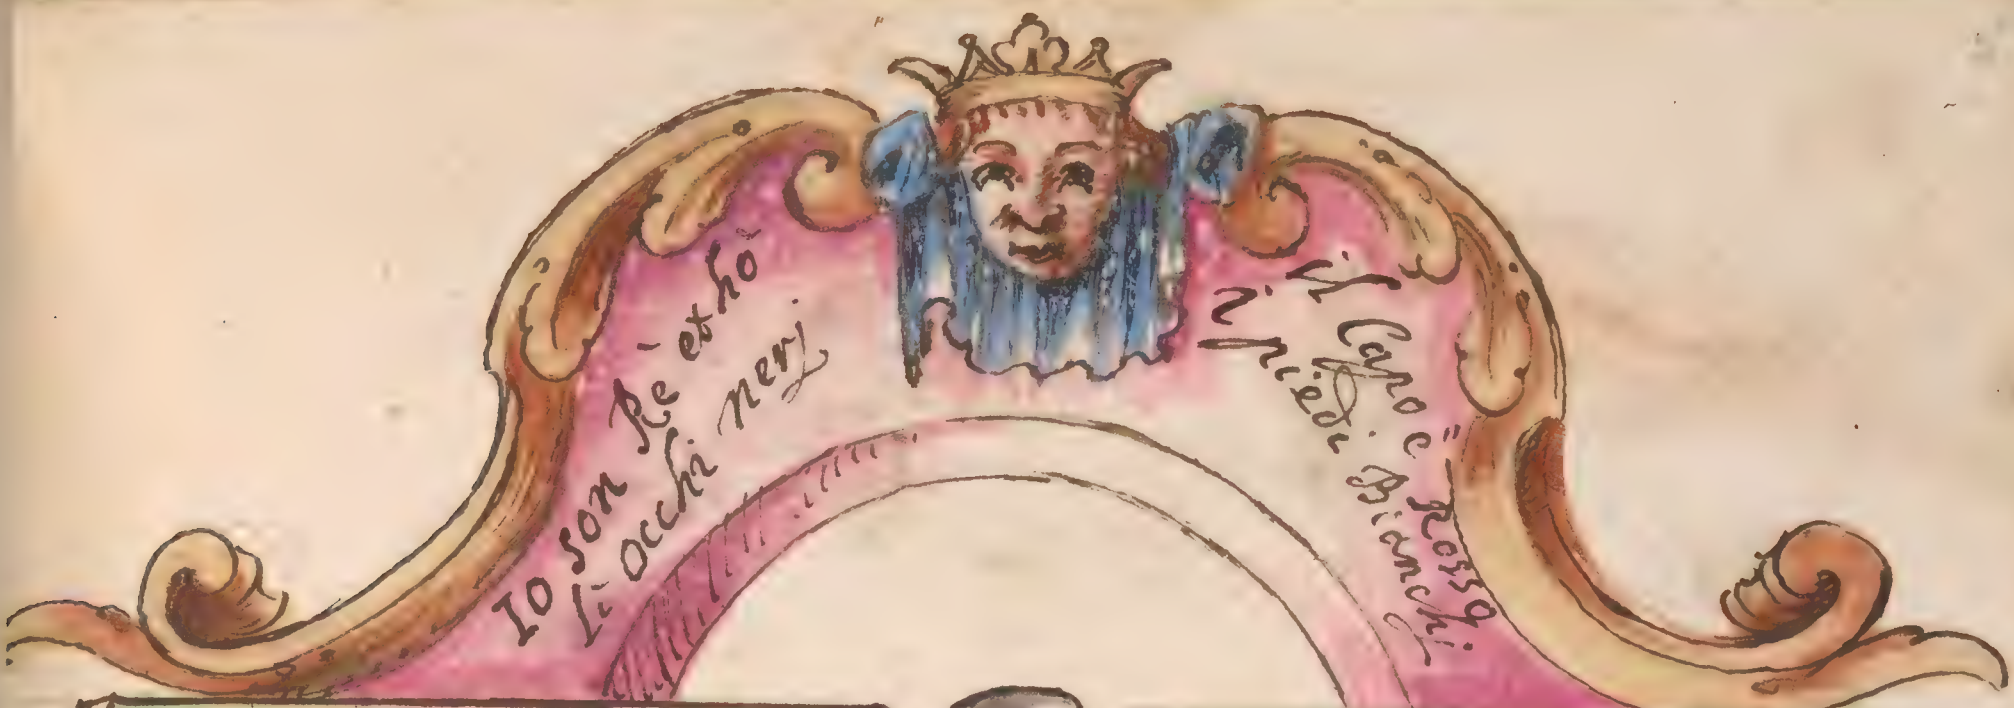 Io son Rè et hò
li occhi nerj
il Capo è Rosso
i piedi Bianchi.